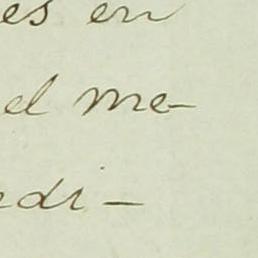 es en
el me-
edi-